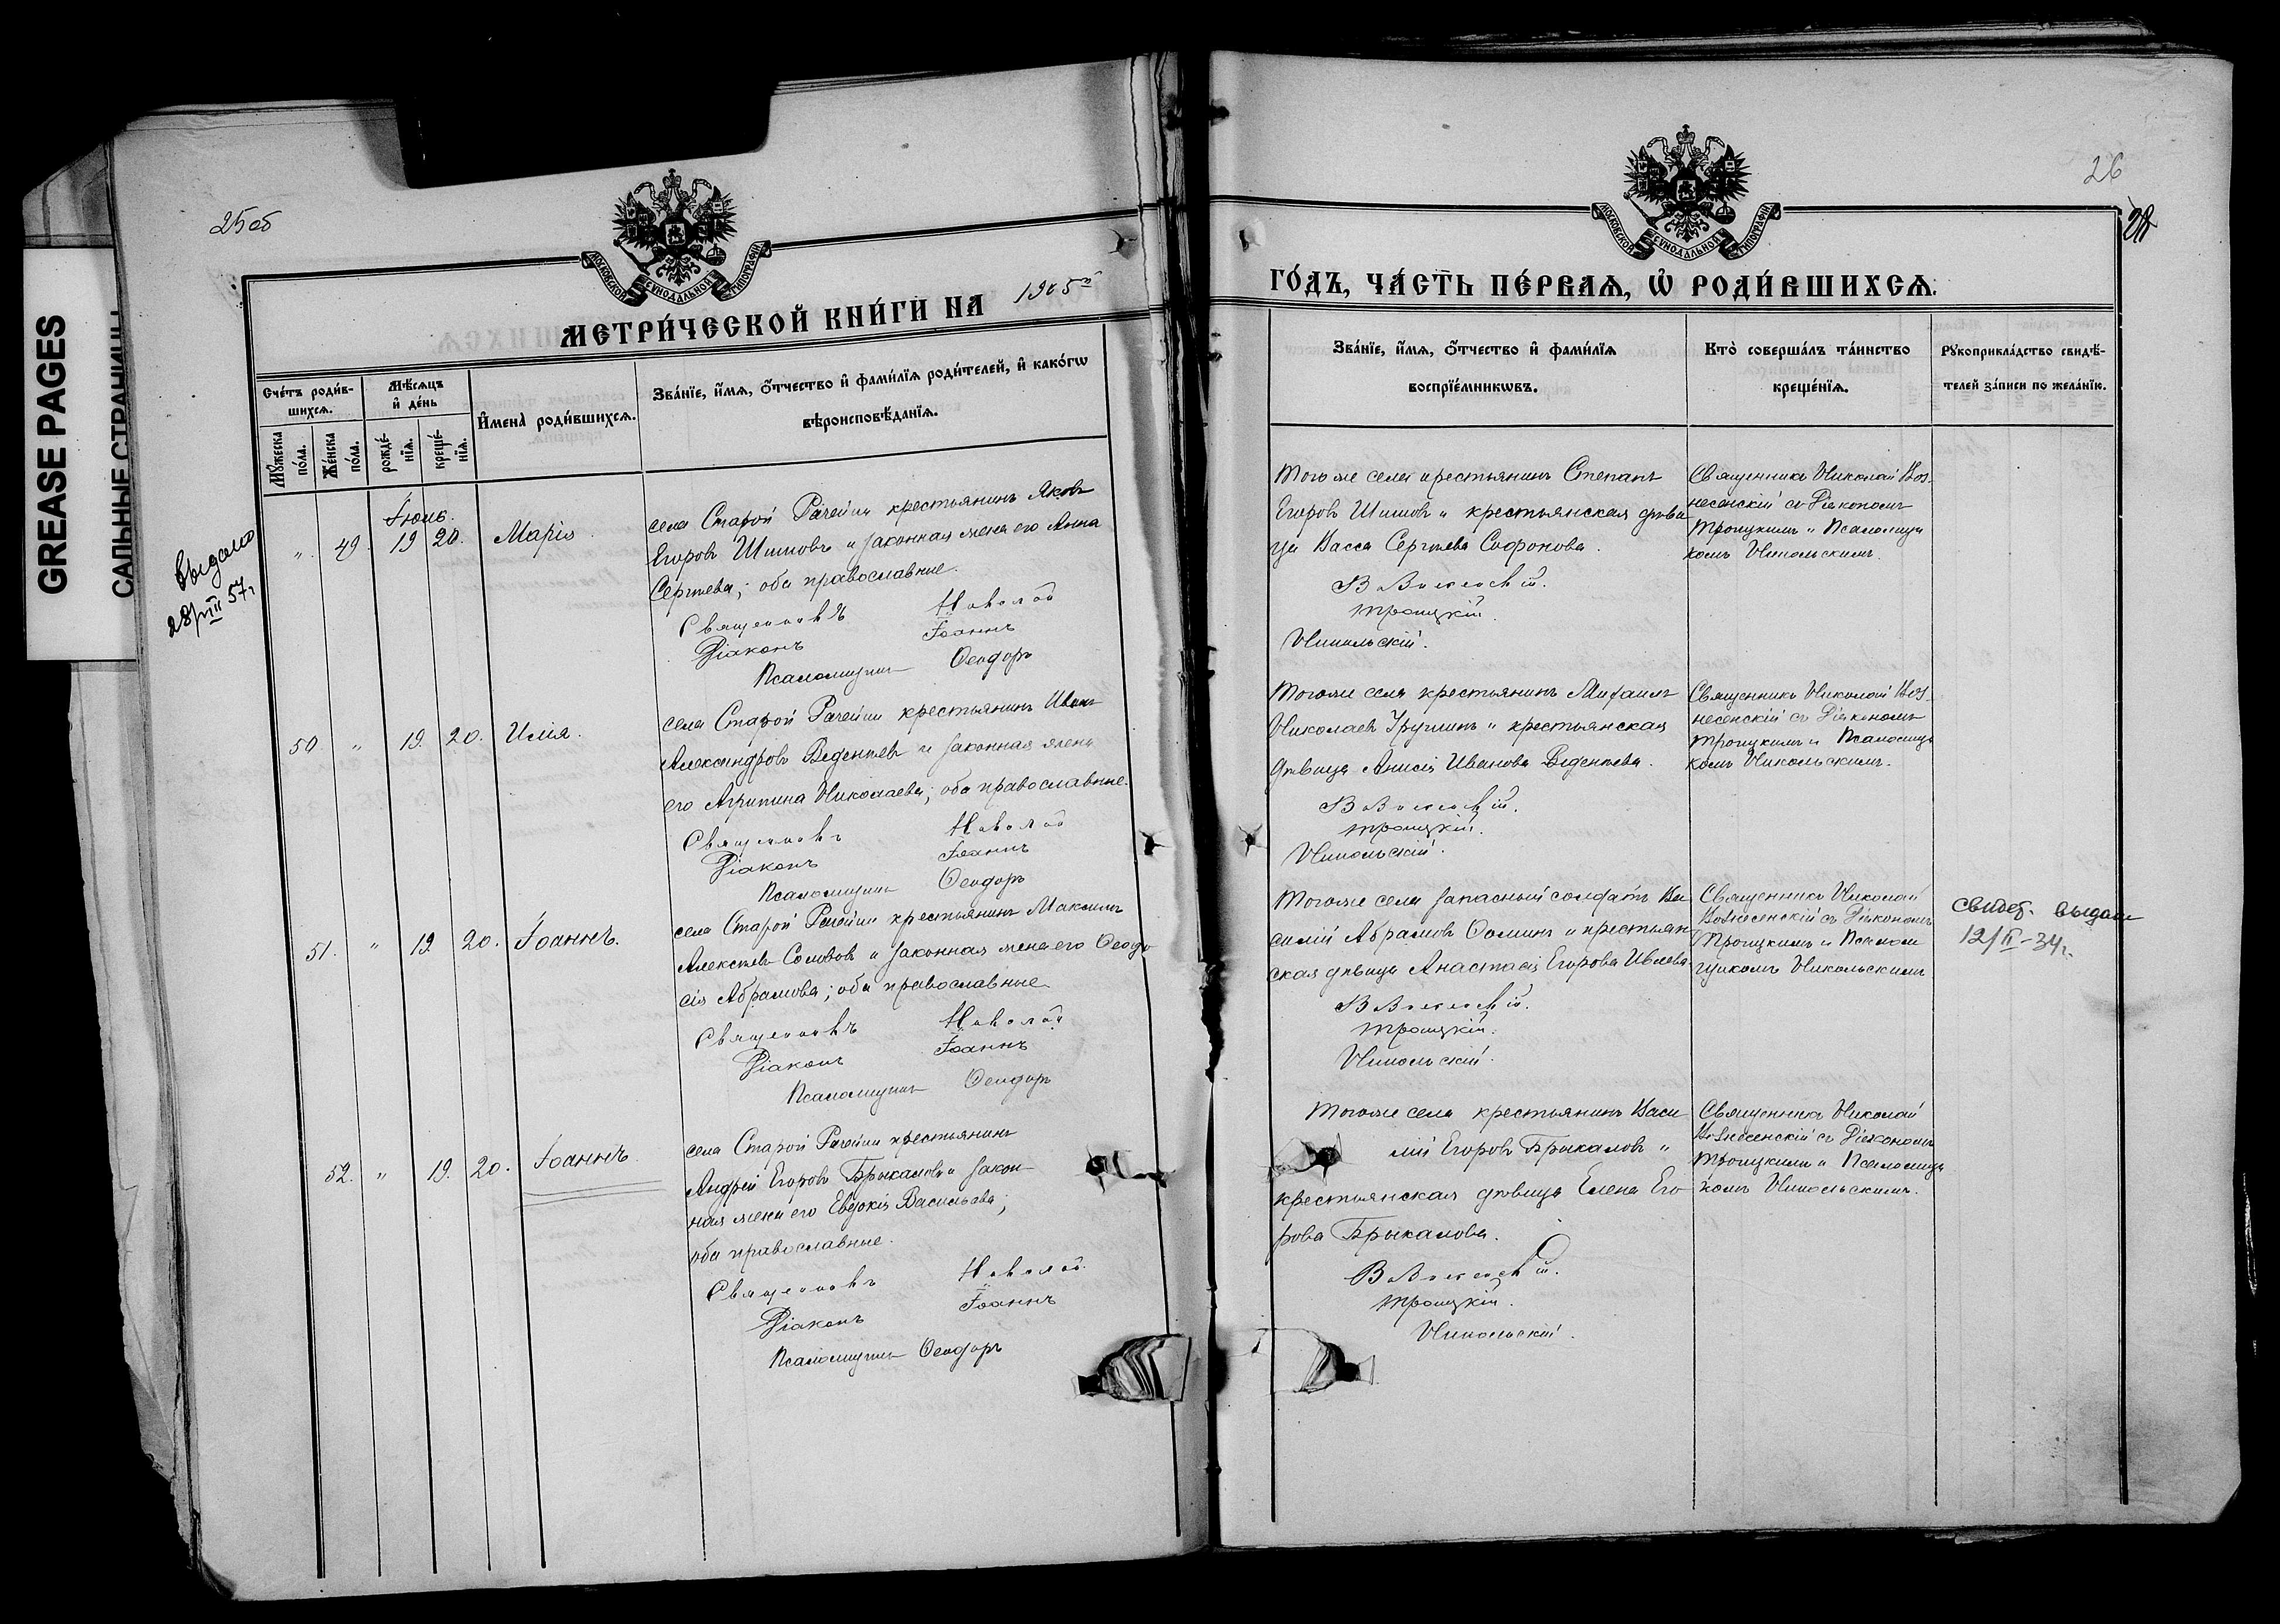 GREASE PAGES
САЛЬНЫЕ СТРАНИЦЫ
25об
МОСКОВСКОЙ СѴНОДАЛЬНОЙ ТИПОГРАФІИ
МЕТРИ́ЧЕСКОЙ КНИ́ГИ НА 1905й
Сче́тъ роди́в-
шихся.
Мѣ́сяцъ
и҆ де́нь
И҆мена̀ роди́вшихся.
Зва́нїе, и҆́мя, ѻ҆́тчество и҆ фами́лїя роди́телей, и҆ како́гѡ
вѣроисповѣ́данїя.
Мꙋ́жеска
по́ла.
Же́нска
по́ла.
рожде́-
нїя.
креще́-
нїя.
Выдано
28/VIII 57г
Іюль.
" 49. 19 20. Марія
села Старой Рачейки крестьянинъ Яковъ
Егоровъ Шишовъ и законная жена его Анна
Сергѣева; оба православные.
Священникъ Николай
Діаконъ Іоаннъ
Псаломщикъ Ѳеодоръ
50. " 19. 20. Илія.
села Старой Рачейки крестьянинъ Иванъ
Александровъ Веденѣевъ и законная жена
его Агрипина Николаева; оба православные.
Священникъ Николай
Діаконъ Іоаннъ
Псаломщикъ Ѳеодоръ
51. " 19 20. Іоаннъ.
села Старой Рачейки крестьянинъ Максимъ
Алексѣевъ Солововъ и законная жена его Ѳеодо
сія Абрамова; оба православные
Священникъ Николай
Діаконъ Іоаннъ
Псаломщикъ Ѳеодоръ
52. " 19. 20. Іоаннъ.
села Старой Рачейки крестьянинъ
Андрей Егоровъ Брыкаловъ и закон-
ная жена его Евдокія Васильева;
оба православные.
Священникъ Николай
Діаконъ Іоаннъ
Псаломщикъ Ѳеодоръ
26
МОСКОВСКОЙ СѴНОДАЛЬНОЙ ТИПОГРАФІИ
ГО́ДЪ, ЧА́СТЬ ПЕ́РВАЯ, Ѽ РОДИ́ВШИХСЯ.
Зва́нїе, и҆́мя, ѻ҆́тчество и҆ фами́лїя
воспрїе́мникѡвъ.
Кто̀ соверша́лъ та́инство
креще́нїя.
Рꙋкоприкла́дство свидѣ́-
телей за́писи по жела́нїю.
Тогоже села крестьянинъ Степанъ
Егоровъ Шишовъ и крестьянская дѣви
ца Васса Сергѣева Софонова.
Вознесенскій.
Троицкій.
Никольскій.
Священникъ Николай Воз-
несенскій съ Діакономъ
Троицкимъ и Псаломщи
комъ Никольскимъ.
Тогоже села крестьянинъ Михаилъ
Николаевъ и крестьянская
дѣвица Анисія Иванова Веденѣева.
Вознесенскій.
Троицкій.
Никольскій.
Священникъ Николай Воз-
несенскій съ Діакономъ
Троицкимъ и Псаломщи
комъ Никольскимъ.
Тогоже села запасный солдатъ Ва
силій Абрамовъ Ѳоминъ и крестьян
ская дѣвица Анастасія Егорова Ивлева.
Вознесенскій.
Троицкій.
Никольскій.
Священникъ Николай
Вознесенскій съ Діакономъ
Троицкимъ и Псалом
щикомъ Никольскимъ
свидет. выдано
12/II-34г.
Тогоже села крестьянинъ Васи
лій Егоровъ Брыкаловъ и
крестьянская дѣвица Елена Его
рова Брыкалова.
Вознесенскій.
Троицкій.
Никольскій.
Священникъ Николай
Вознесенскій съ Діакономъ
Троицкимъ и Псаломщи
комъ Никольскимъ.